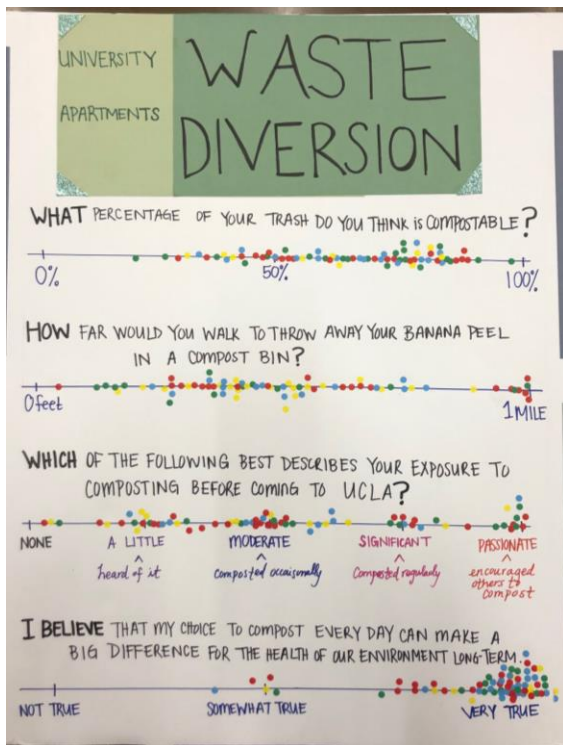 UNIVERSITY
APARTMENTS
WASTE
DIVERSION
WHAT PERCENTAGE OF YOUR TRASH DO YOU THINK IS COMPOSTABLE?
0%
50%
100%
HOW FAR WOULD YOU WALK TO THROW AWAY YOUR BANANA PEEL
IN A COMPOST BIN?
0 feet
1 MILE
WHICH OF THE FOLLOWING BEST DESCRIBES YOUR EXPOSURE TO
COMPOSTING BEFORE COMING TO UCLA?
NONE
A LITTLE
heard of it
MODERATE
composted occaisonally
SIGNIFICANT
Composted regularly
PASSIONATE
encouraged
others to
compost
I BELIEVE THAT MY CHOICE TO COMPOST EVERY DAY CAN MAKE A
BIG DIFFERENCE FOR THE HEALTH OF OUR ENVIRONMENT LONG-TERM.
NOT TRUE
SOMEWHAT TRUE
VERY TRUE